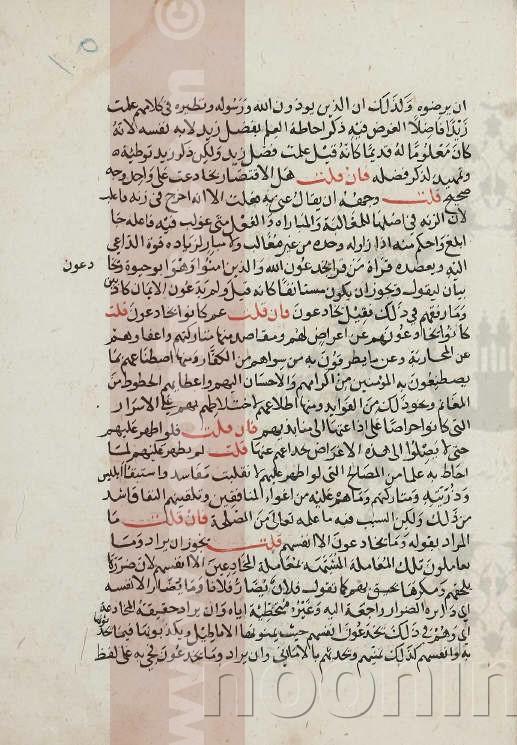 ١٠٥
ان يرضوه وكذلك ان الذين يوذون الله ورسوله ونظيره في كلامهم علمت
زيدا فاضلا الغرض فيه ذكر احاطة العلم بفضل زيد لا به نفسه لانه
كان معلوما له قديما كانه قيل علمت فضل زيد ولكن ذكر زيد توطية
وتمهيد لذكر فضله فان قلت هل للاقتصار بخادعت على واحد وجه
صحيح قلت وجهه ان يقال عني به فعلت الا انه اخرج في زنة فاعلت
لان الزنة في اصلها للمغالبة والمباراة والفعل متى غولب فيه فاعله جا
ابلغ واحكم منه اذا زاوله وحده من غير مغالب ولا مبار لزيادة قوة الداعي
اليه ويعضده قراة من قرا يخدعون الله والذين امنوا وهو ابو حيوة
دعون
بيان ليقول ويجوز ان يكون مستانفا كانه قيل ولم يدعون الايمان كاذبين
وما رفقهم في ذلك فقيل يخادعون فان قلت عم كانوا يخادعون قلت
كانوا يخادعونهم عن اغراض لهم ومقاصد منها متاركتهم واعفاوهم
عن المحاربة وعن ما يطرقون به من سواهم من الكفار ومنها اصطناعهم بما
يصطنعون به المومنين من اكرامهم والاحسان اليهم واعطايهم الحظوظ من
المغانم ونحو ذلك من الفوايد ومنها اطلاعهم لاختلاطهم بهم على الاسرار
التي كانوا حراصا على اذاعتها الى منابذيهم فان قلت فلو اظهر عليهم
حتى لا يصلوا الى هذه الاغراض بخداعهم عنها قلت لم يظهر عليهم لما
احاط به علما من المصالح التي لو اظهر عليهم لانقلبت مفاسد واستبقا ابليس
وذريته ومتاركتهم وما هم عليه من اغواء المنافقين وتلقينهم النفاق اشد
من ذلك ولكن السبب فيه ما علمه تعالى من المصلحة فان قلت ما
المراد بقوله وما يخادعون الا انفسهم قلت يجوز ان يراد وما
يعاملون تلك المعاملة المشبهة بمعاملة المخادعين الا انفسهم لان ضررها
يلحقهم ومكرها يحيق بهم كما تقول فلان يضار فلانا وما يضار الا نفسه
اي دايرة الضرار راجعة اليه وغير متخطية اياه وان يراد حقيقة المخادعة
اي وهم في ذلك يخدعون انفسهم حيث يمنونها الاباطيل ويكذبونها فيما يحدثونها
به وانفسهم كذلك تمنيهم وتحدثهم بالاماني وان يراد وما يخدعون فجي به على لفظ
noonin
www.noonin